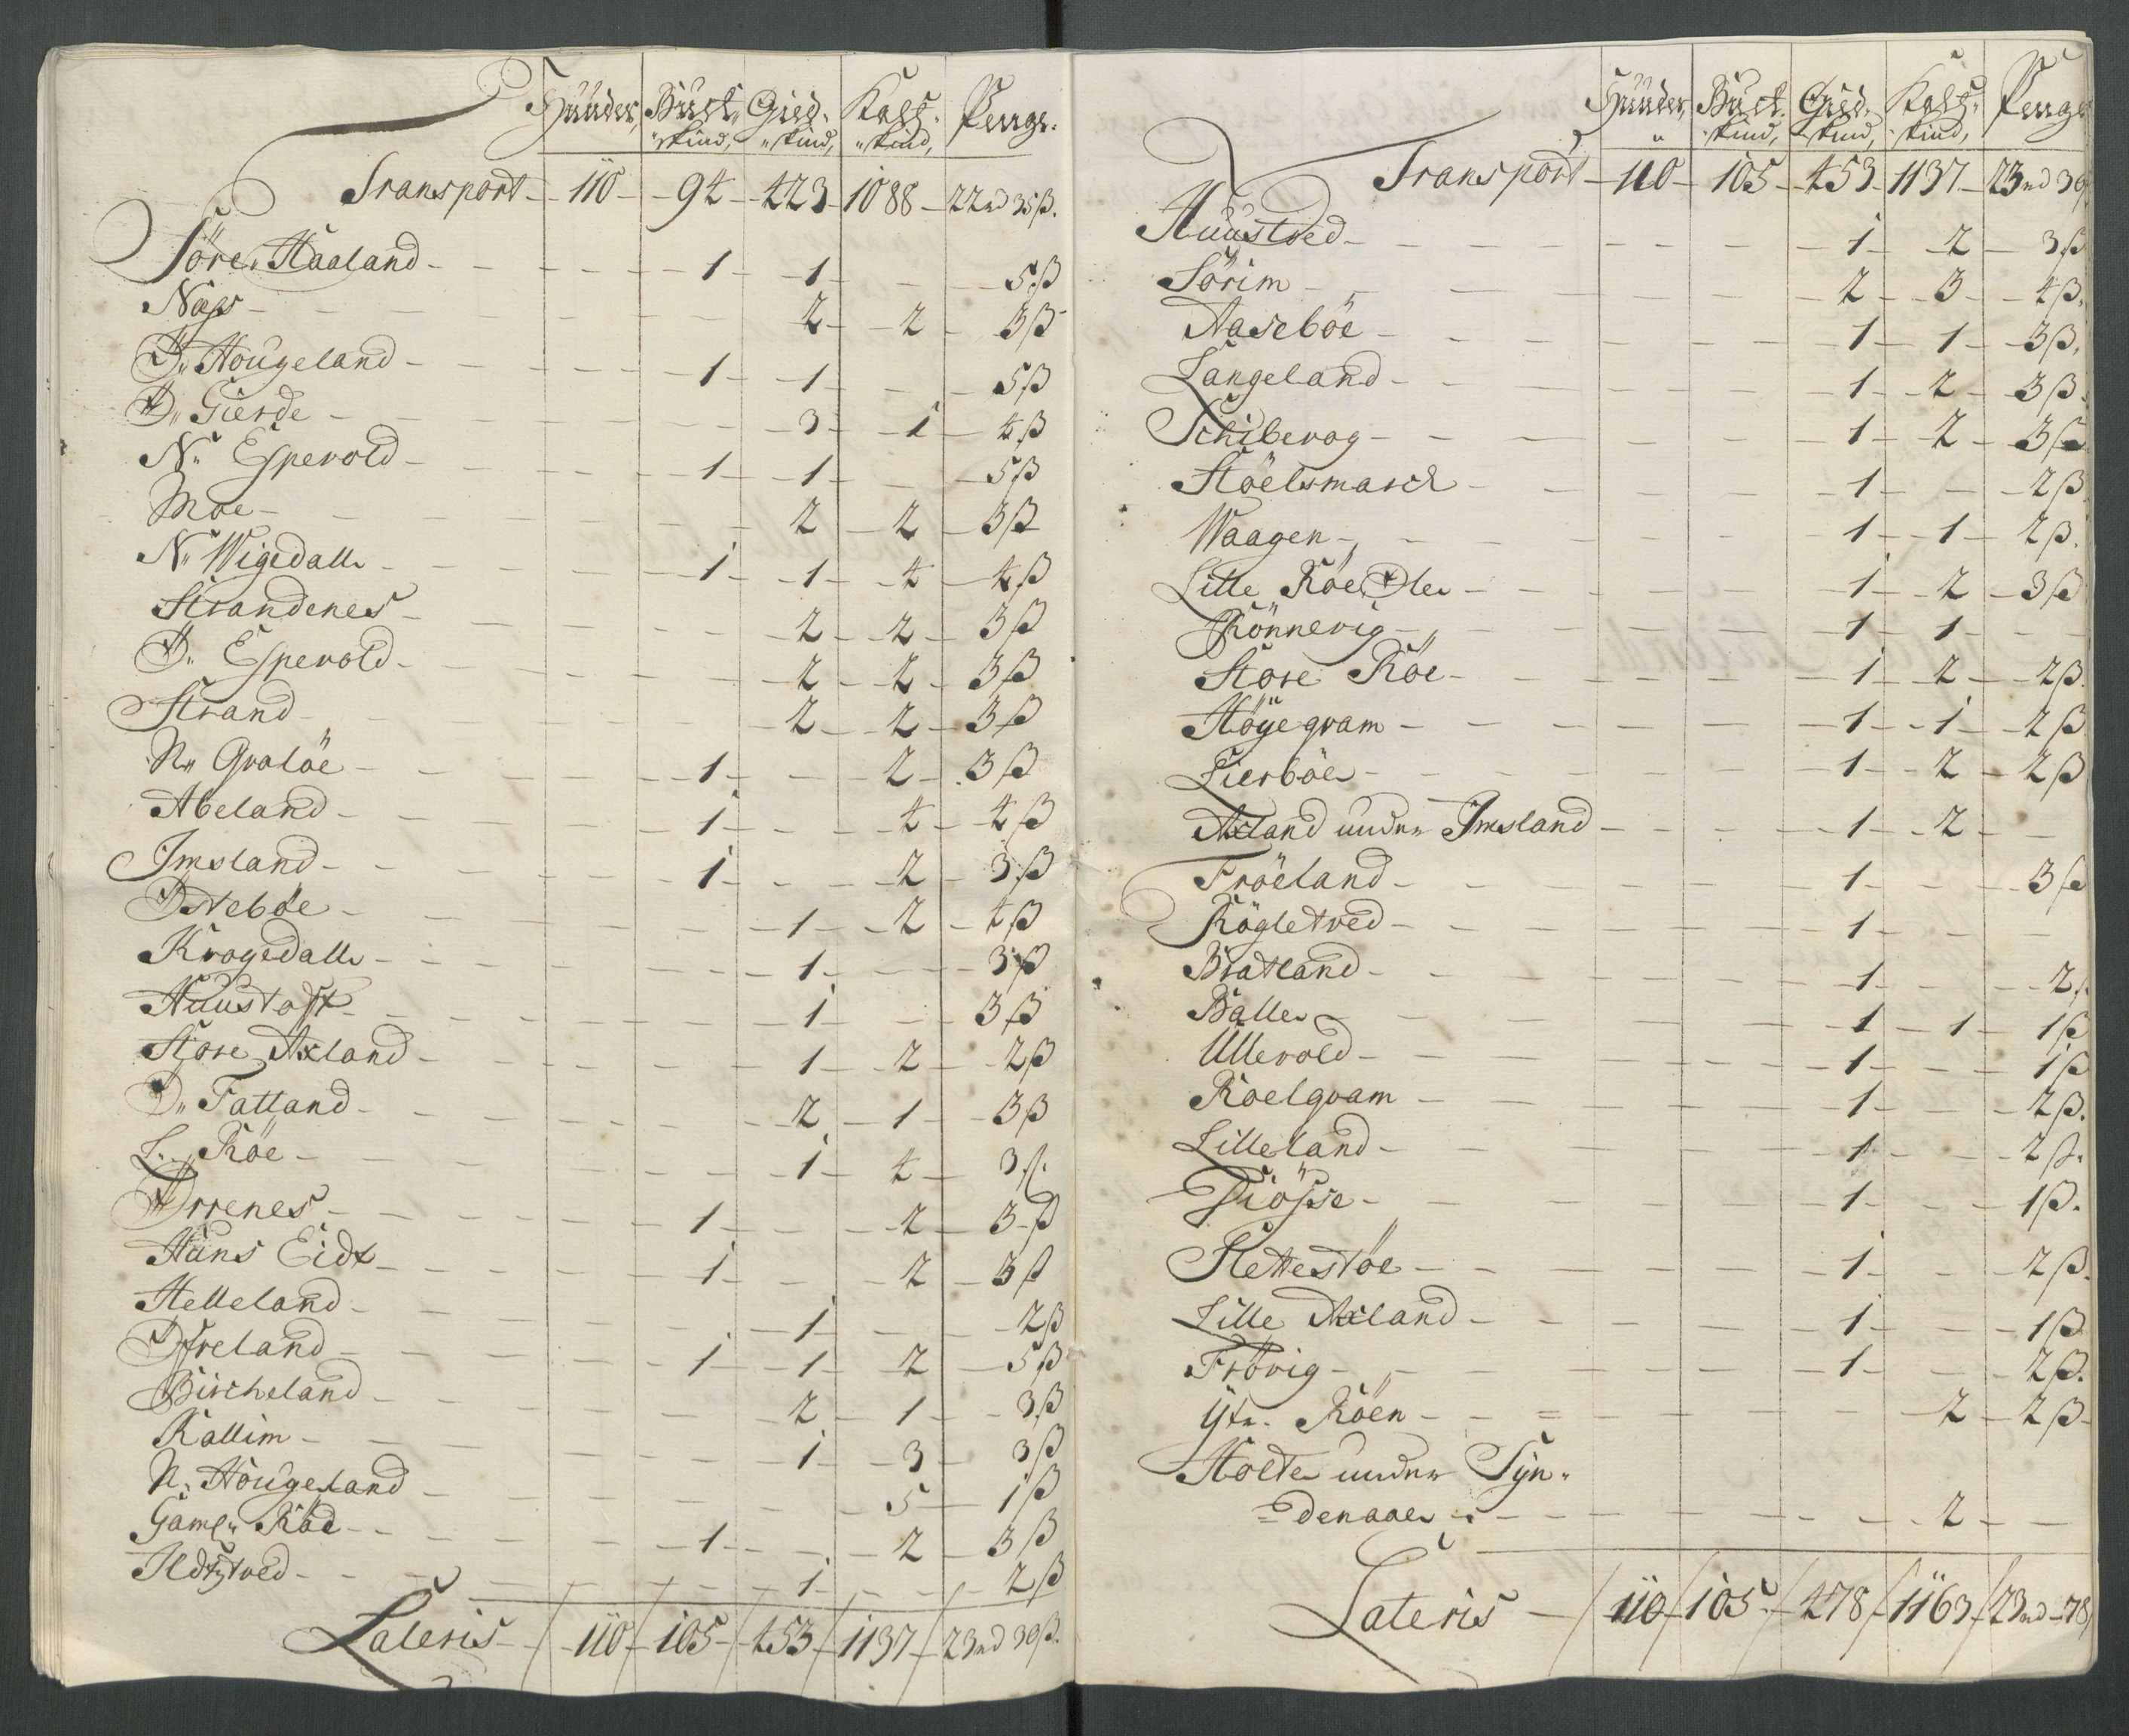 Huuder, Buck„ Gied„ Kalf„ Penge.
„skind, „skind, „skind,
Transport 110 94 423 1088 22rd 35ß.
Söre Haaland 1 1 5ß
Næs 2 2 3ß
Ö„ Hougeland 1 1 5ß
Ö„ Gierde 3 1 4ß
N„ Espevold 1 1 5ß
Moe 2 2 3ß
N„ Wigedall 1 1 4 4ß
Strandenes 2 2 3ß
Ö„ Espevold 2 2 3ß
Strand 2 2 3ß
N„ Qvaløe 1 2 3ß
Abeland 1 4 4ß
Imsland 1 2 3ß
Østebøe 1 2 4ß
Kragedall 1 3ß
Huustoft 1 3ß
Store Axland 1 2 2ß
Ö„ Fatland 2 1 3ß
L. Röe 1 4 3ß.
Ørrenes 1 2 3ß
Hans Eidt 1 2 3ß
Helleland 1 2ß
Øfreland 1 1 2 5ß
Bircheland 2 1 3ß
Kallim 1 3 3ß
N. Hougeland 5 1ß
Gaml„ Röd 1 2 3ß
Ildstved 1 2ß
Lateris 110 105 453 1137 23rd 30ß.
Huuder, Buck„ Gied„ Kalf„ Penge
„ skind, skind, skind,
Transport 110 105 453 1137 23rd 30ß
Huustved 1 2 3ß
Sörim 2 3 4ß.
Aaseböe 1 1 3ß.
Langeland 1 2 3ß.
Schibevog 1 2 3ß
Stöelsmarck 1 2ß
Waagen 1 1 2ß.
Lille Röe Øde 1 2 3ß
Rönnevig 1 1
Store Röe 1 2 2ß.
Höyeqvam 1 1 2ß
Lierböe 1 2 2ß
Axland under Imsland 1 2
Fröeland 1 3ß
Rögletved 1
Bratland 1 2ß
Balle 1 1 1ß
Ullevold 1 1ß
Roelqvam 1 2ß.
Lilleland 1 2ß.
Tiösse 1 1ß.
Slettestöe 1 2ß.
Lille Axland 1 1ß
Frövig 1 2ß.
Ytr. Röen 2 2ß
Holte under Syn„
=denaae 2
Lateris 110 105 478 1163 23rd 78ß